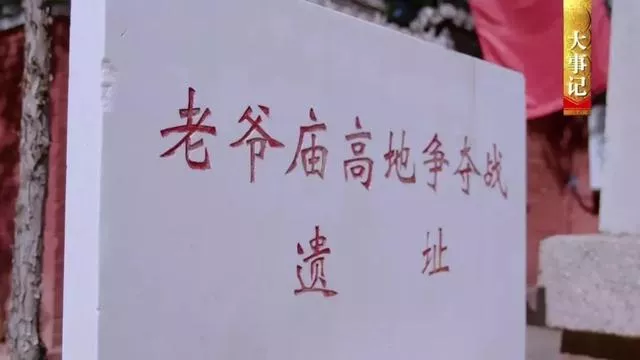 老爷庙高地争夺战
遗址
大事记